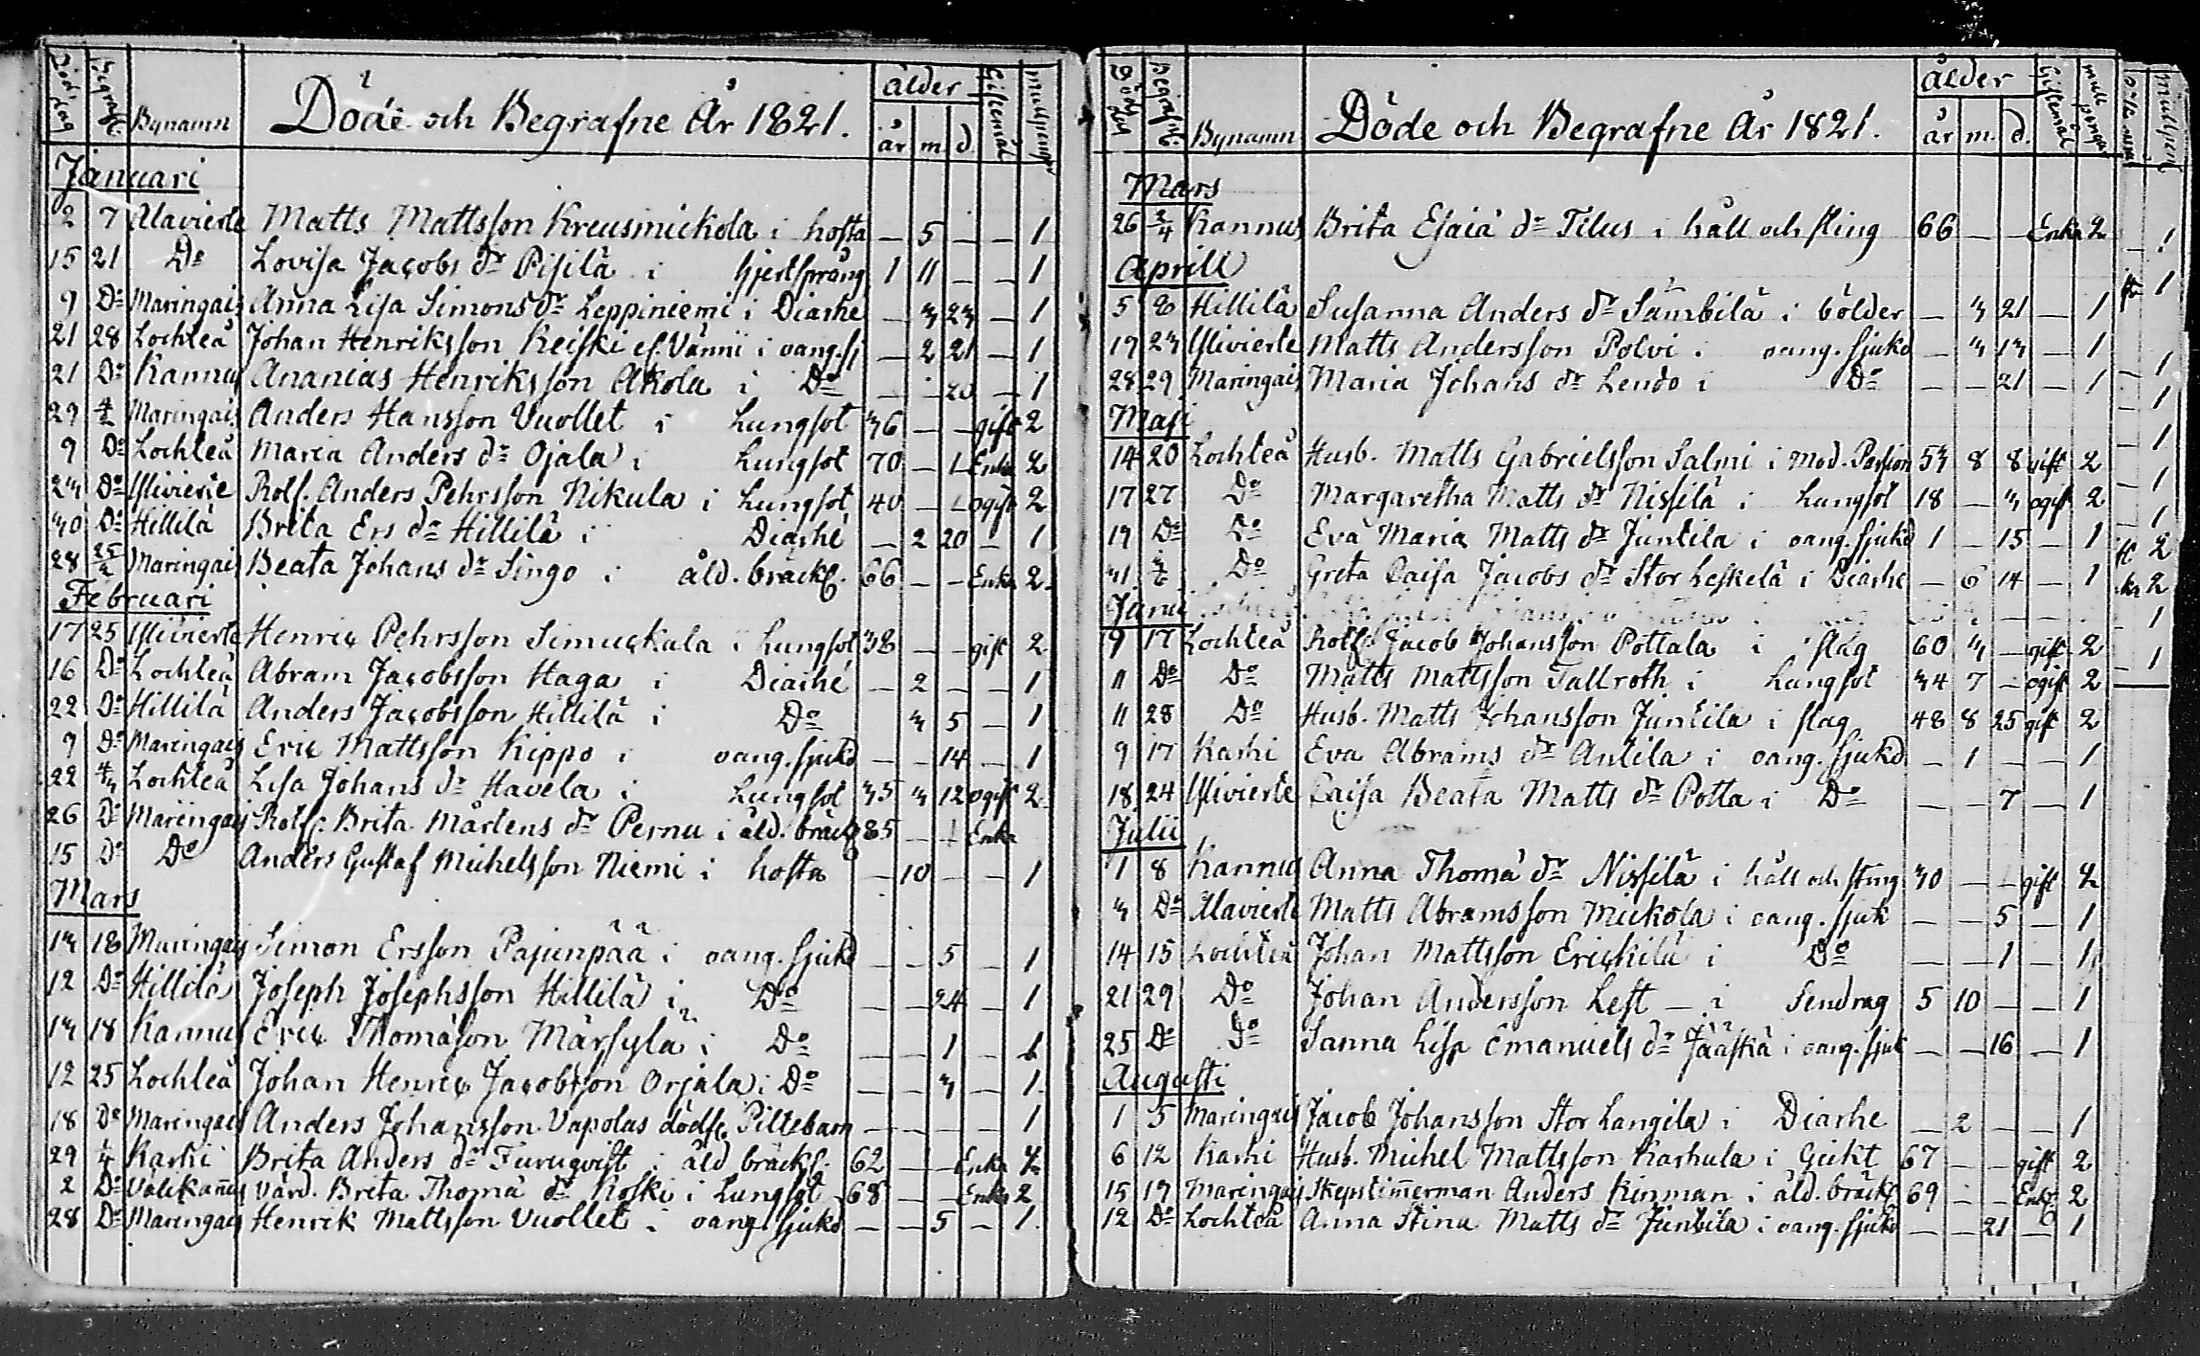 Döds dag Begrafn. Bynamn Döde och Begrafne År 1821. ålder år m. d. Giftemål mullpengar
Januari
2 7 Alavierte Matts Mattsson Kreusmickola i hosta — 5 — — 1
15 21 Do Lovisa Jacobs dr Pisilä i hjertsprång 1 11 — — 1
9 Do Maringais Anna Lisa Simons dr Leppiniemi i Diarhé — 3 23 — 1
21 28 Lochteå Johan Henriksson Keiski el. Vänni i oang. sj — 2 21 — 1
21 Do Kannus Ananias Henriksson Akola i Do — — 20 — 1
29 4/2 Maringais Anders Hansson Vuollet i Lungsot 36 — — gift 2
9 Do Lochteå Maria Anders dr Ojala i Lungsot 70 — — Enka 2
23 Do Ylivierte Rolf. Anders Pehrsson Nikula i Lungsot 40 — — ogift 2
30 Do Hillilä Brita Ers dr Hillilä i Diarhé — 2 20 — 1
28 25/2 Maringais Beata Johans dr Singo i åld. bräckl. 66 — — Enka 2
Februari
17 25 Ylivierte Henric Pehrsson Simuckala i Lungsot 38 — — gift 2
16 Do Lochteå Abram Jacobsson Haga i Diarhé — 2 — — 1
22 Do Hillilä Anders Jacobsson Hillilä i Do — 3 5 — 1
9 Do Maringais Eric Mattsson Kippo i oang. sjukd — — 14 — 1
22 4/3 Lochteå Lisa Johans dr Havela i Lungsot 35 3 12 ogift 2
26 Do Maringais Rolf: Brita Mårtens dr Pernu i åld. bräckl 85 — — Enka
15 Do Do Anders Gustaf Michelsson Niemi i hosta — 10 — — 1
Mars
13 18 Maringais Simon Ersson Pajunpää i oang. sjukd — — 5 — 1
12 Do Hillilä Joseph Josephsson Hillilä i Do — — 24 — 1
13 18 Kannus Eric Thomasson Märsylä i Do — — 1 — 1
12 25 Lochteå Johan Henric Jacobsson Orjala i Do — — 3 — 1
18 Do Maringais Anders Johansson Vapolas dödf. Piltebarn — — — — 1
29 1/4 Karhi Brita Anders dr Furuqvist i åld bräckl. 62 — — Enka 2
2 Do Välikañus Värd. Brita Thomä dr Koski i Lungsot 68 — — Enka 2
28 Do Maringais Henrik Mattsson Vuollet i oang. sjukd — — 5 — 1
Döds dag Begrafn. Bynamn Döde och Begrafne År 1821. ålder år m. d. Giftemål mull pengar
Mars
26 2/4 Kannus Brita Esaiä dr Tilus i håll och sting 66 — — Enka 2
Aprill
5 8 Hillilä Susanna Anders dr Sämbilä i bölder — 3 21 — 1
19 23 Ylivierte Matts Andersson Polvi i oang. sjukd — 3 13 — 1
28 29 Maringais Maria Johans dr Lendo i Do — — 21 — 1
Maji
14 20 Lochteå Husb. Matts Gabrielsson Salmi i Mod. Passion 53 8 8 gift 2
17 27 Do Margaretha Matts dr Nissilä i Lungsot 18 — 3 ogift 2
19 Do Do Eva Maria Matts dr Juntila i oang. sjukd 1 — 15 — 1
31 3/6 Do Greta Caisa Jacobs dr Stor Leskelä i Diarhe — 6 14 — 1
Junii
9 17 Lochteå Rolfs Jacob Johansson Pottala i slag 60 3 — gift 2
11 Do Do Matts Mattsson Tallroth i Lungsot 34 7 — ogift 2
11 28 Do Husb. Matts Johansson Juntila i slag 48 8 25 gift 2
9 17 Karhi Eva Abrams dr Antila i oang. sjukd — 1 — — 1
18 24 Ylivierte Caisa Beata Matts dr Potta i Do — — 7 — 1
Julii
1 8 Kannus Anna Thomä dr Nissilä i håll och sting 30 — — gift 2
3 Do Alavierte Matts Abramsson Mickola i oang. sjuk — — 5 — 1
14 15 Lochteå Johan Mattsson Erickilä i Do — — 1 — 1
21 29 Do Johan Andersson Lest i Sendrag 5 10 — — 1
25 Do Do Sanna Lisa Emanuels dr Jääskä i oang. sjuk — — 16 — 1
Augusti
1 5 Maringais Jacob Johansson Stor Langila i Diarhe — 2 — — 1
6 12 Karhi Husb. Michel Mattsson Karhula i Gickt 67 — — gift 2
15 19 Maringais Skepstim̃erman Anders Kinman i åld. bräckl 69 — — Enkl. 2
12 Do Lochteå Anna Stina Matts dr Juntila i oang. sjukd — — 21 — 1